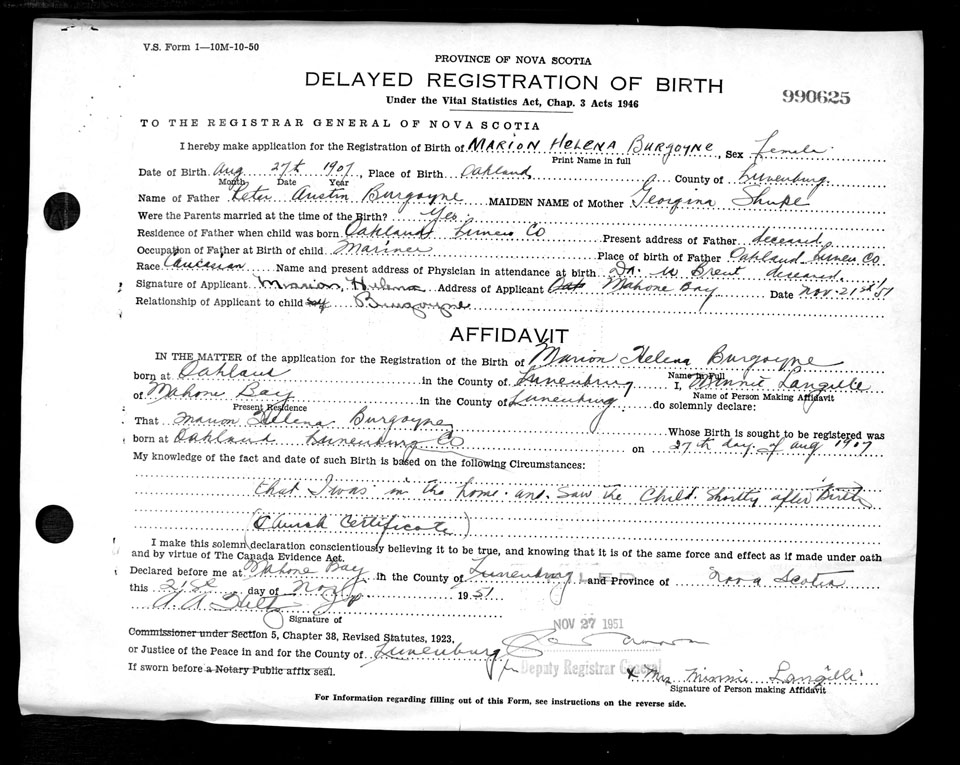 V.S. Form 1—10M-10-50
PROVINCE OF NOVA SCOTIA
DELAYED REGISTRATION OF BIRTH
990625
Under the Vital Statistics Act, Chap. 3 Acts 1946
TO THE REGISTRAR GENERAL OF NOVA SCOTIA
I hereby make application for the Registration of Birth of MARION HELENA BURGOYNE, Sex female
Print Name in full
Date of Birth Aug 27th 1907, Place of Birth Oakland, County of Lunenburg
Month Date Year
Name of Father Peter Austin Burgoyne MAIDEN NAME of Mother Georgina Shupe
Were the Parents married at the time of the Birth? Yes
Residence of Father when child was born Oakland Lunen Co Present address of Father deceased
Occupation of Father at Birth of child Mariner Place of birth of Father Oakland Lunen Co.
Race Caucasian Name and present address of Physician in attendance at birth Dr. deceased
Signature of Applicant Marion Helena Address of Applicant Mahone Bay Date Nov. 21st 51
Relationship of Applicant to child Burgoyne
AFFIDAVIT
IN THE MATTER of the application for the Registration of the Birth of Marion Helena Burgoyne
Name in Full
born at Oakland in the County of Lunenburg I, Minnie Langille
of Mahone Bay in the County of Lunenburg do solemnly declare:
Name of Person Making Affidavit
Present Residence
That Marion Helena Burgoyne Whose Birth is sought to be registered was
born at Oakland Lunenburg Co on 27th day of Aug 1907
My knowledge of the fact and date of such Birth is based on the following Circumstances:
that I was in the home and saw the Child Shortly after Birth
(Church Certificate)
I make this solemn declaration conscientiously believing it to be true, and knowing that it is of the same force and effect as if made under oath
and by virtue of The Canada Evidence Act.
Declared before me at Mahone Bay in the County of Lunenburg and Province of Nova Scotia
this 21st day of Nov 1951
Signature of
NOV 27 1951
Commissioner under Section 5, Chapter 38, Revised Statutes, 1923,
or Justice of the Peace in and for the County of Lunenburg
Deputy Registrar General
If sworn before a Notary Public affix seal.
x Mrs Minnie Langille
Signature of Person making Affidavit
For Information regarding filling out of this Form, see instructions on the reverse side.